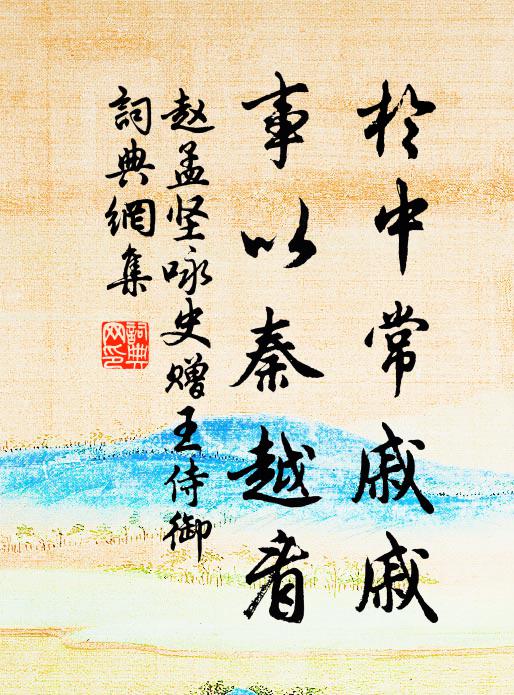 於中常戚戚
事以秦越看
赵孟坚咏史赠王侍御
詞典網集
詞典
网印